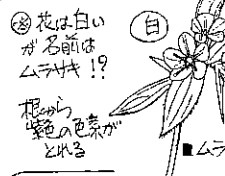 ㊟ 花は白い
が 名前は
ムラサキ !?
白
根から
紫色の色素が
とれる
■ムラ